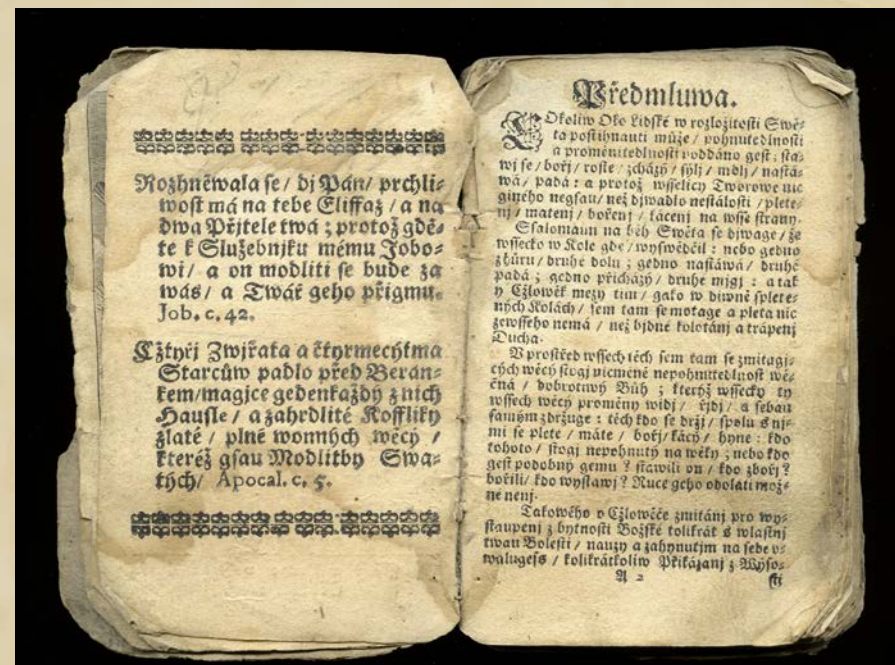 Rozhněwala se / dj Pán / prchli⸗
wost má na tebe Eliffaz / a na
dwa Přjtele twá ; protož gdě⸗
te k Služebnjku mému Jobo⸗
wi / a on modliti se bude za
wás / a Twář geho přigmu.
Job. c. 42.
Cžtyři Zwjřata a čtyrmecýtma
Starcůw padlo před Beran⸗
kem / magjce gedenkaždý z nich
Hausle / a zahrdlité Kofflíky
zlaté / plné wonných wěcý /
kteréž gsau Modlitby Swa⸗
tých / Apocal. c. 5.
Předmluwa.
COkoliw Oko Lidské w rozložitosti Swě⸗
ta postihnauti může / pohnutedlnosti
a proměnitedlnosti poddáno gest : sta⸗
wj se / bořj / roste / zcházý / sýlj / mdlj / nastá⸗
wá / padá : a protož wsselicy Tworowe nic
giného negsau / než djwadlo nestálosti / plete⸗
nj / matenj / bořenj / kácenj na wsse strany.
Ssalomaun na běh Swěta se djwage / že
wssecko w Kole gde / wyswědčil : nebo gedno
zhůru / druhé dolu ; gedno nastáwá / druhé
padá ; gedno přicházý / druhé mjgj : a tak
y Cžlowěk mezy tim / gako w diwně splete⸗
ných Kolách / sem tam se motage a pleta nic
zewsseho nemá / než bjdné kolotánj a trápenj
Ducha.
V prostřed wssech těch sem tam se zmitagj⸗
cých wěcý stogj nicméně nepohnutedlnost wě⸗
čná / dobrotiwý Bůh ; kterýž wssecky ty
wssech wěcý proměny widj / řjdj / a sebau
samým zdržuge : těch kdo se držj / spolu s nj⸗
mi se plete / máte / bořj / kácý / hyne : kdo
tohoto / stogj nepohnutý na wěky ; nebo kdo
gest podobný gemu ? stawili on / kdo zbořj ?
bořili / kdo wystawj ? Ruce geho odolati mož⸗
né nenj.
Takowého o Cžlowěče zmitánj pro wy⸗
staupenj z bytnosti Božské tolikrát s wlastnj
twau Bolestj / nauzy a zahynutjm na sebe v⸗
walugess / kolikrátkoliw Přikázanj z Wýso⸗
A 2 sti